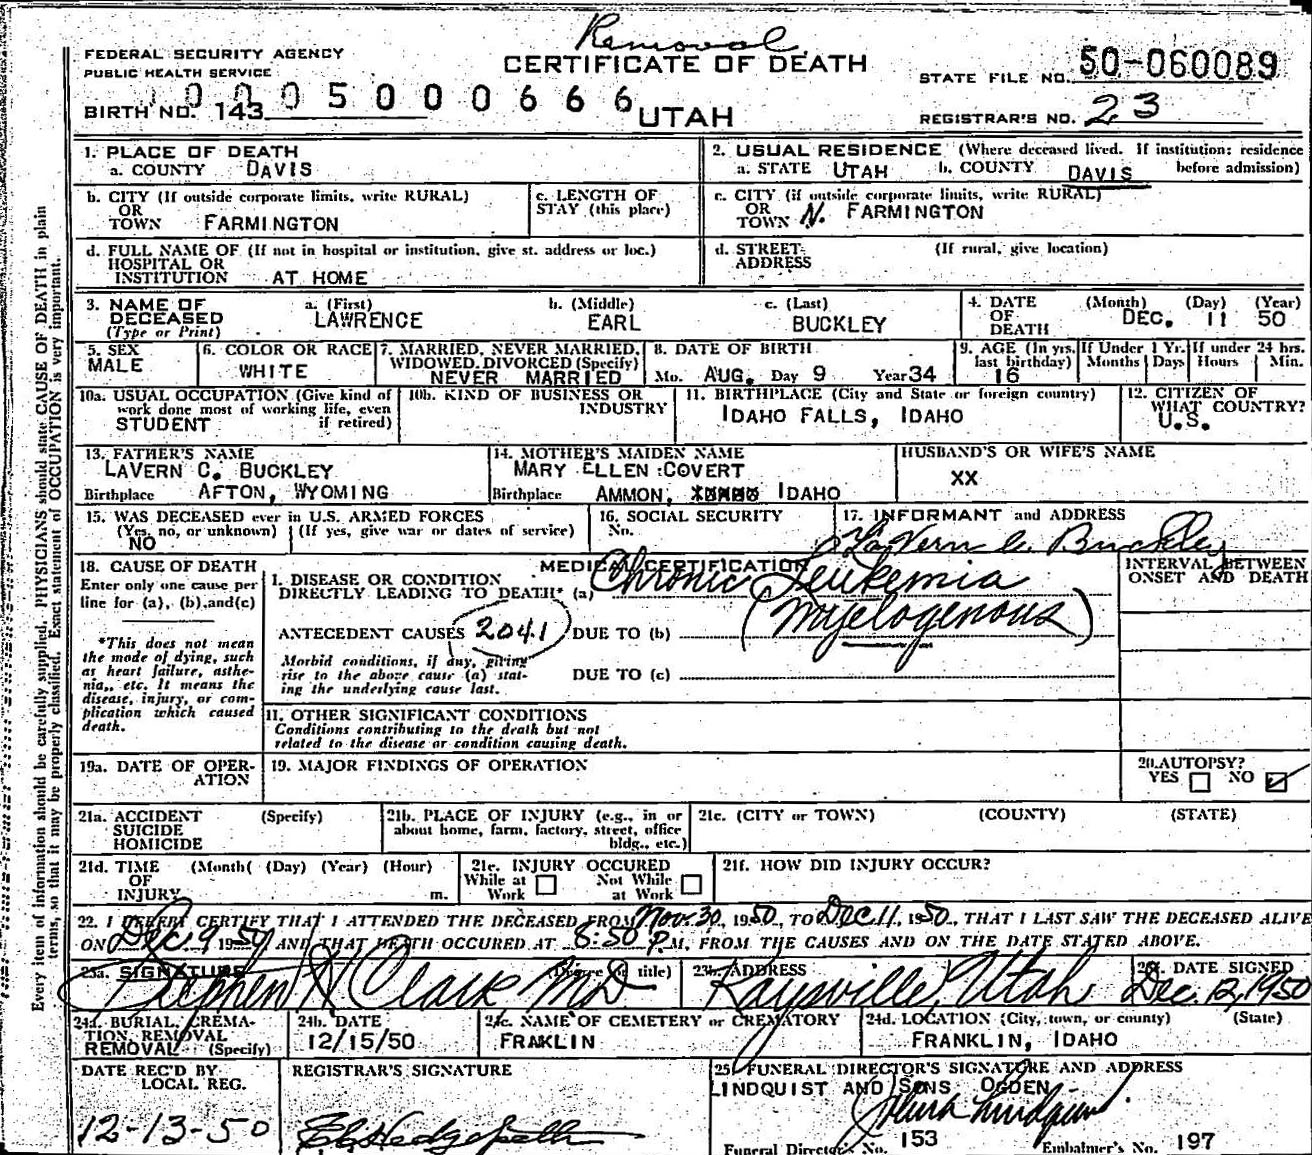 Removal
FEDERAL SECURITY AGENCY
PUBLIC HEALTH SERVICE
CERTIFICATE OF DEATH
STATE FILE NO. 50-060089
0005000666
BIRTH NO. 143
UTAH
REGISTRAR'S NO. 23
1. PLACE OF DEATH
a. COUNTY DAVIS
2. USUAL RESIDENCE (Where deceased lived. If institution: residence before admission)
a. STATE UTAH b. COUNTY DAVIS
b. CITY (If outside corporate limits, write RURAL)
OR
TOWN FARMINGTON
c. LENGTH OF
STAY (this place)
c. CITY (if outside corporate limits, write RURAL)
OR
TOWN N. FARMINGTON
d. FULL NAME OF (If not in hospital or institution, give st. address or loc.)
HOSPITAL OR
INSTITUTION AT HOME
d. STREET (If rural, give location)
ADDRESS
3. NAME OF DECEASED
(Type or Print)
a. (First) LAWRENCE
b. (Middle) EARL
c. (Last) BUCKLEY
4. DATE OF DEATH (Month) (Day) (Year)
DEC. 11 50
5. SEX
MALE
6. COLOR OR RACE
WHITE
7. MARRIED, NEVER MARRIED,
WIDOWED, DIVORCED (Specify)
NEVER MARRIED
8. DATE OF BIRTH
Mo. AUG. Day 9 Year 34
9. AGE (In yrs. last birthday)
16
If Under 1 Yr.
Months Days
If under 24 hrs.
Hours Min.
10a. USUAL OCCUPATION (Give kind of
work done most of working life, even
if retired)
STUDENT
10b. KIND OF BUSINESS OR
INDUSTRY
11. BIRTHPLACE (City and State or foreign country)
IDAHO FALLS, IDAHO
12. CITIZEN OF
WHAT COUNTRY?
U.S.
13. FATHER'S NAME
LAVERN C. BUCKLEY
Birthplace AFTON, WYOMING
14. MOTHER'S MAIDEN NAME
MARY ELLEN COVERT
Birthplace AMMON, IDAHO
HUSBAND'S OR WIFE'S NAME
XX
15. WAS DECEASED ever in U.S. ARMED FORCES
(Yes, no, or unknown) (If yes, give war or dates of service)
NO
16. SOCIAL SECURITY
No.
17. INFORMANT and ADDRESS
LaVern C. Buckley
18. CAUSE OF DEATH
Enter only one cause per
line for (a), (b), and (c)
*This does not mean
the mode of dying, such
as heart failure, asthe-
nia, etc. It means the
disease, injury, or com-
plication which caused
death.
MEDICAL CERTIFICATION
INTERVAL BETWEEN
ONSET AND DEATH
I. DISEASE OR CONDITION
DIRECTLY LEADING TO DEATH* (a) Chronic Leukemia
(Myelogenous)
ANTECEDENT CAUSES 2041 DUE TO (b)
Morbid conditions, if any, giving
rise to the above cause (a) stat-
ing the underlying cause last.
DUE TO (c)
11. OTHER SIGNIFICANT CONDITIONS
Conditions contributing to the death but not
related to the disease or condition causing death.
19a. DATE OF OPER-
ATION
19. MAJOR FINDINGS OF OPERATION
20. AUTOPSY?
YES NO
21a. ACCIDENT (Specify)
SUICIDE
HOMICIDE
21b. PLACE OF INJURY (e.g., in or
about home, farm, factory, street, office
bldg., etc.)
21c. (CITY or TOWN) (COUNTY) (STATE)
21d. TIME (Month( (Day) (Year) (Hour)
OF
INJURY m.
21e. INJURY OCCURED
While at Work Not While at Work
21f. HOW DID INJURY OCCUR?
22. I HEREBY CERTIFY THAT I ATTENDED THE DECEASED FROM Nov. 30, 1950, TO Dec. 11, 1950, THAT I LAST SAW THE DECEASED ALIVE
ON Dec. 9 1950 AND THAT DEATH OCCURED AT 8:50 P.M, FROM THE CAUSES AND ON THE DATE STATED ABOVE.
23a. SIGNATURE (Degree or title)
Stephen H Clark MD
23b. ADDRESS
Kaysville, Utah
23c. DATE SIGNED
Dec. 12, 1950
24a. BURIAL, CREMA-
TION, REMOVAL
REMOVAL (Specify)
24b. DATE
12/15/50
24c. NAME OF CEMETERY or CREMATORY
FRAKLIN
24d. LOCATION (City, town, or county) (State)
FRANKLIN, IDAHO
DATE REC'D BY
LOCAL REG.
12-13-50
REGISTRAR'S SIGNATURE
25 FUNERAL DIRECTOR'S SIGNATURE AND ADDRESS
LINDQUIST AND SONS OGDEN
Funeral Director's No. 153 Embalmer's No. 197
Every item of information should be carefully supplied. PHYSICIANS should state CAUSE OF DEATH in plain
terms, so that it may be properly classified. Exact statement of OCCUPATION is very important.